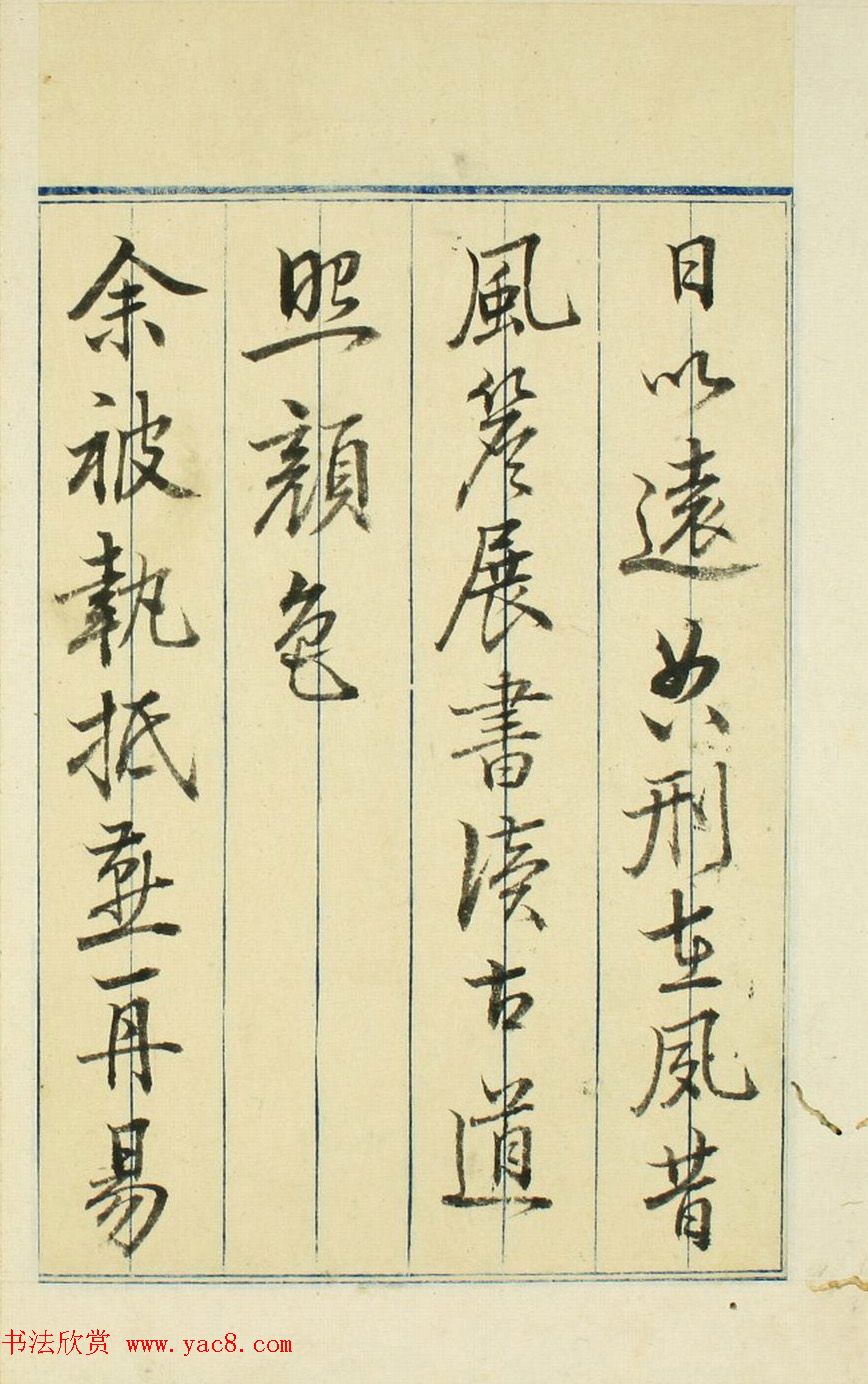 日以遠典刑在夙昔
風簷展書讀古道
照顏色
余被執抵燕再易
书法欣赏 www.yac8.com